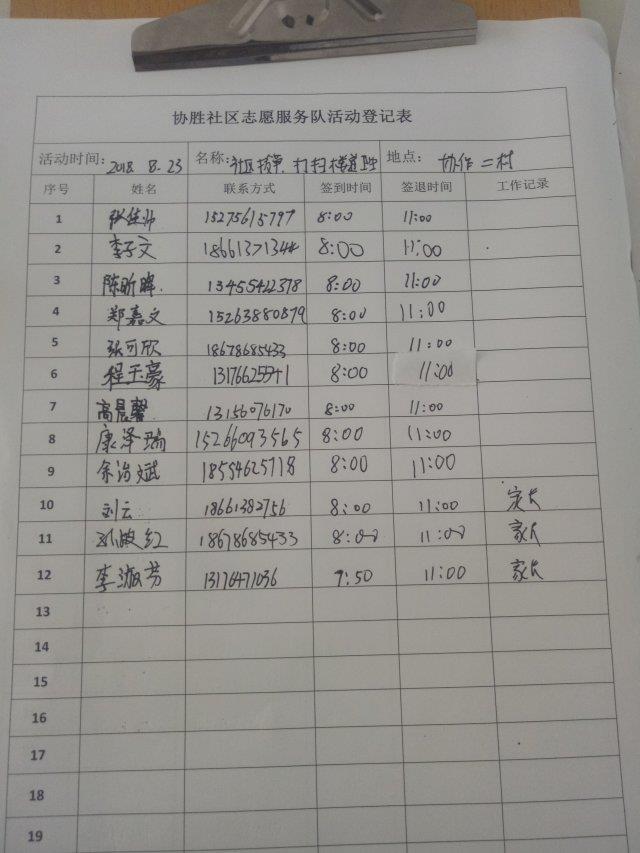 协胜社区志愿服务队活动登记表
活动时间：2018. 8. 23 名称：社区拔草、打扫楼道卫生 地点：协作二村
序号 姓名 联系方式 签到时间 签退时间 工作记录
1 张佳 15275615797 8:00 11:00
2 李子文 18661371344 8:00 11:00
3 陈昕晖 13455422378 8:00 11:00
4 郑嘉文 15263880879 8:00 11:00
5 张可欣 18678685433 8:00 11:00
6 程玉豪 13176625941 8:00 11:00
7 高晨馨 13156076170 8:00 11:00
8 康泽瑞 15266093565 8:00 11:00
9 余治斌 18554625718 8:00 11:00
10 刘云 18661382756 8:00 11:00 家长
11 孙红 18678685433 8:00 11:00 家长
12 李淑芳 13176471036 7:50 11:00 家长
13
14
15
16
17
18
19